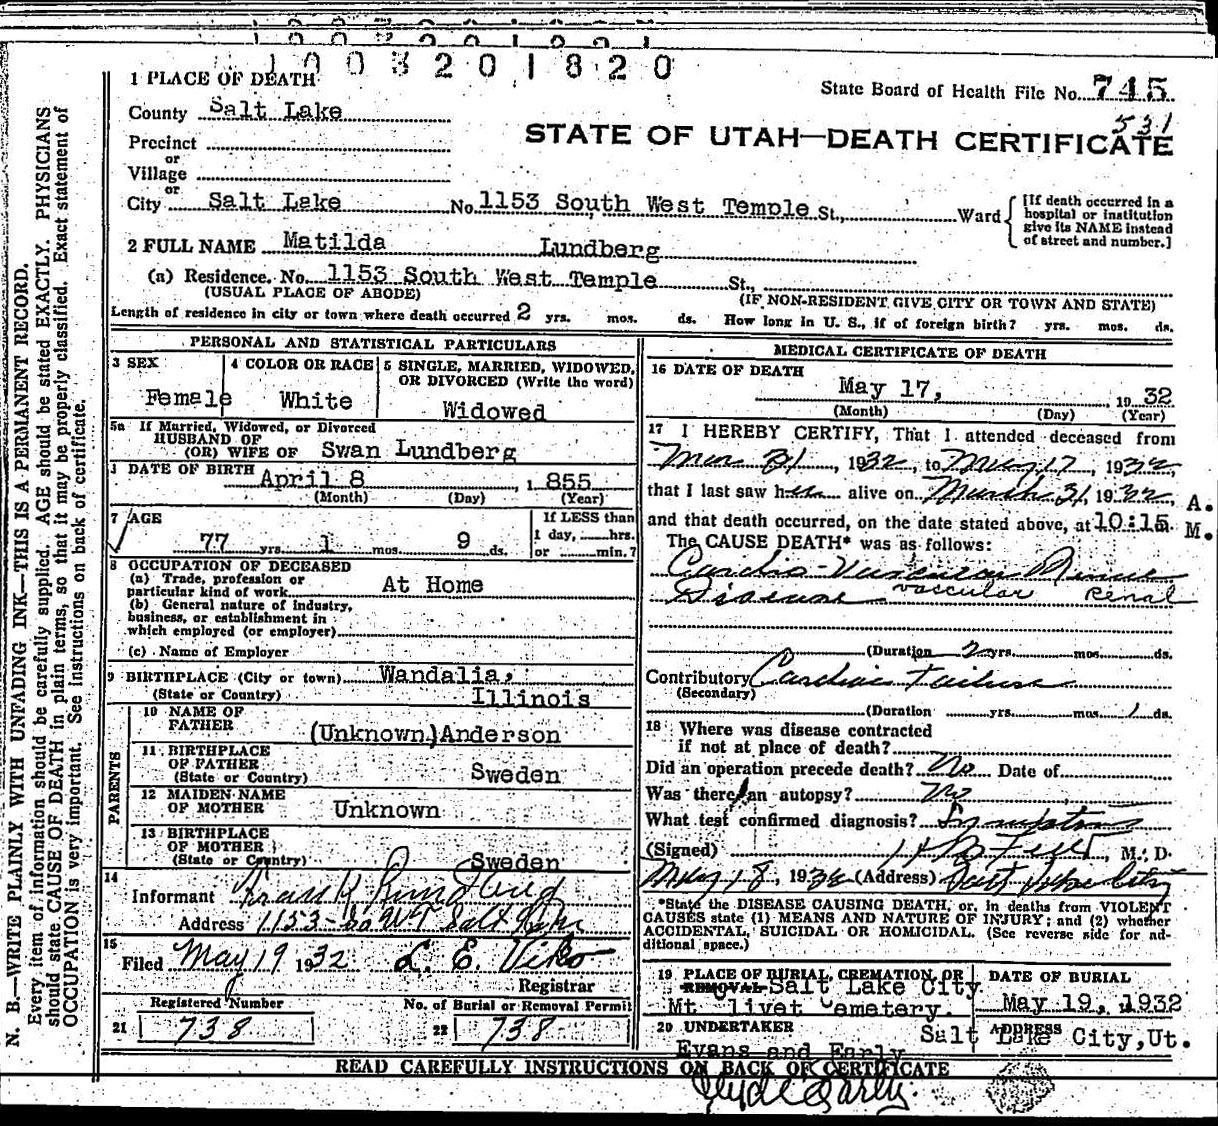 1003201820
1 PLACE OF DEATH
State Board of Health File No. 745
County Salt Lake
531
STATE OF UTAH—DEATH CERTIFICATE
Precinct
or
Village
or
City Salt Lake No. 1153 South West Temple St., Ward
[If death occurred in a hospital or institution give its NAME instead of street and number.]
2 FULL NAME Matilda Lundberg
(a) Residence. No. 1153 South West Temple St.,
(USUAL PLACE OF ABODE) (IF NON-RESIDENT GIVE CITY OR TOWN AND STATE)
Length of residence in city or town where death occurred 2 yrs. mos. ds. How long in U. S., if of foreign birth? yrs. mos. ds.
PERSONAL AND STATISTICAL PARTICULARS
3 SEX
Female
4 COLOR OR RACE
White
5 SINGLE, MARRIED, WIDOWED, OR DIVORCED (Write the word)
Widowed
5a If Married, Widowed, or Divorced
HUSBAND OF
(OR) WIFE OF Swan Lundberg
DATE OF BIRTH April 8 , 1855
(Month) (Day) (Year)
7 AGE
77 yrs. 1 mos. 9 ds.
If LESS than
1 day, hrs.
or min.?
8 OCCUPATION OF DECEASED
(a) Trade, profession or
particular kind of work At Home
(b) General nature of industry,
business, or establishment in
which employed (or employer)
(c) Name of Employer
9 BIRTHPLACE (City or town) Wandalia,
(State or Country) Illinois
PARENTS
10 NAME OF
FATHER (Unknown.) Anderson
11 BIRTHPLACE
OF FATHER
(State or Country) Sweden
12 MAIDEN NAME
OF MOTHER Unknown
13 BIRTHPLACE
OF MOTHER
(State or Country) Sweden
14
Informant Frank Lundberg
Address 1153 So WT Salt Lake
15
Filed May 19 1932 L. E. Viko
Registrar
Registered Number
21 738
No. of Burial or Removal Permit
22 738
MEDICAL CERTIFICATE OF DEATH
16 DATE OF DEATH
May 17, 1932
(Month) (Day) (Year)
17 I HEREBY CERTIFY, That I attended deceased from
Mar 31, 1932, to May 17, 1932
that I last saw her alive on March 31, 1932,
and that death occurred, on the date stated above, at 10:15 A. M.
The CAUSE DEATH* was as follows:
Cardio-Vascular Renal
Disease vascular Renal
(Duration 2 yrs. mos. ds.
Contributory Cardiac Failure
(Secondary)
(Duration yrs. mos. 1 ds.
18 Where was disease contracted
if not at place of death?
Did an operation precede death? No Date of
Was there an autopsy? No
What test confirmed diagnosis? Symptoms
(Signed) , M. D.
May 18, 1932 (Address) Salt Lake City
*State the DISEASE CAUSING DEATH, or, in deaths from VIOLENT
CAUSES state (1) MEANS AND NATURE OF INJURY; and (2) whether
ACCIDENTAL, SUICIDAL OR HOMICIDAL. (See reverse side for ad-
ditional space.)
19 PLACE OF BURIAL, CREMATION, OR
REMOVAL Salt Lake City
Mt. livet Cemetery.
DATE OF BURIAL
May 19, 1932
20 UNDERTAKER
Evans and Early
ADDRESS
Salt Lake City, Ut.
READ CAREFULLY INSTRUCTIONS ON BACK OF CERTIFICATE
Clyde Early.
N. B.—WRITE PLAINLY WITH UNFADING INK—THIS IS A PERMANENT RECORD.
Every item of information should be carefully supplied. AGE should be stated EXACTLY. PHYSICIANS
should state CAUSE OF DEATH in plain terms, so that it may be properly classified. Exact statement of
OCCUPATION is very important. See instructions on back of certificate.